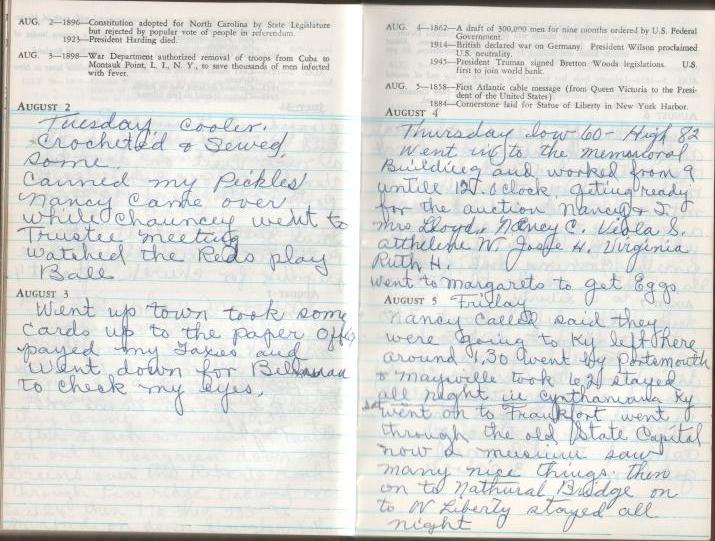 AUG. 2—1896—Constitution adopted for North Carolina by State Legislature
but rejected by popular vote of people in referendum.
1923—President Harding died.
AUG. 3—1898—War Department authorized removal of troops from Cuba to
Montauk Point, L. I., N. Y., to save thousands of men infected
with fever.
AUGUST 2
Tuesday cooler.
Crocheted & Sewed
some.
Canned my Pickles
Nancy Came over
while Chauncey went to
Trustee meeting
watched the Reds play
Ball
AUGUST 3
Went up town took some
cards up to the paper Office
payed my Taxes and
went down for
to check my eyes.
AUG. 4—1862—A draft of 300,000 men for nine months ordered by U.S. Federal
Government.
1914—British declared war on Germany. President Wilson proclaimed
U.S. neutrality.
1945—President Truman signed Bretton Woods legislations. U.S.
first to join world bank.
AUG. 5—1858—First Atlantic cable message (from Queen Victoria to the Presi-
dent of the United States)
1884—Cornerstone laid for Statue of Liberty in New York Harbor.
AUGUST 4
Thursday low 60 - High 82
Went in to the memorial
Building and worked from 9
untill 12. Oclock, geting ready
for the auction Nancy & I.
Mrs Lloyd, Nancy C. Viola S.
W Josie H. Virginia
Ruth H.
went to Margarets to get Eggs
AUGUST 5 Friday
Nancy Called said they
were going to Ky left here
around 1,30 went by Portsmouth
& Maysville took 62 stayed
all night in Cynthaniana Ky
sat went on to Frankfort went
through the old State Capital
now a museium saw
many nice things. then
on to Nathural Bridge on
to W Liberty stayed all
night